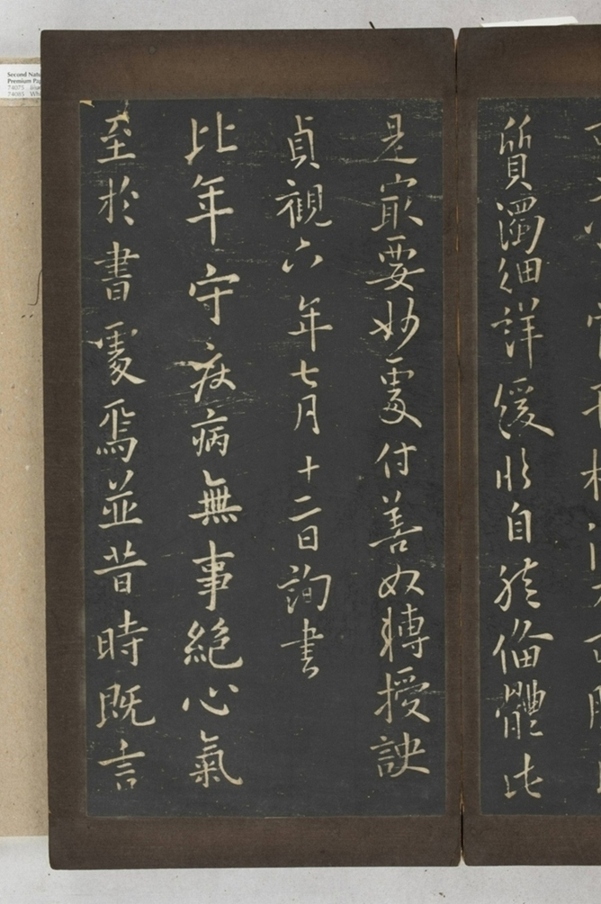 質濁細詳緩臨自然俻體此
是㝡要妙處付善奴轉授訣
貞觀六年七月十二日詢書
比年守疾病無事絕心氣
至於書處焉並昔時既言
Second Natu
Premium Pa